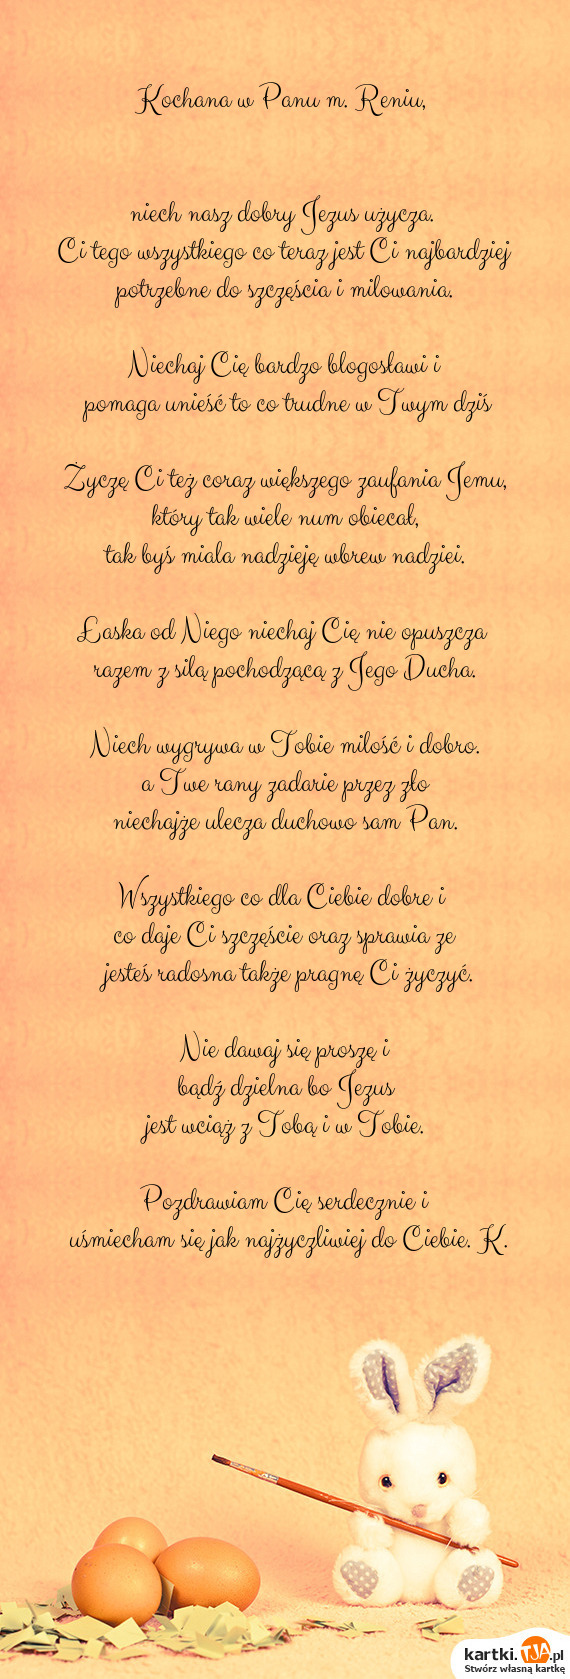 Kochana w Panu m. Reniu,
niech nasz dobry Jezus użycza.
Ci tego wszystkiego co teraz jest Ci najbardziej
potrzebne do szczęścia i milowania.
Niechaj Cię bardzo blogosławi i
pomaga unieść to co trudne w Twym dziś
Życzę Ci też coraz większego zaufania Jemu,
który tak wiele num obiecał,
tak byś miala nadzieję wbrew nadziei.
Łaska od Niego niechaj Cię nie opuszcza
razem z silą pochodzącą z Jego Ducha.
Niech wygrywa w Tobie milość i dobro.
a Twe rany zadarie przez zło
niechajże ulecza duchowo sam Pan.
Wszystkiego co dla Ciebie dobre i
co daje Ci szczęście oraz sprawia ze
jesteś radosna także pragnę Ci życzyć.
Nie dawaj się proszę i
bądź dzielna bo Jezus
jest wciąż z Tobą i w Tobie.
Pozdrawiam Cię serdecznie i
uśmiecham się jak najżyczliwiej do Ciebie. K.
kartki.TJA.pl
Stwórz własną kartkę